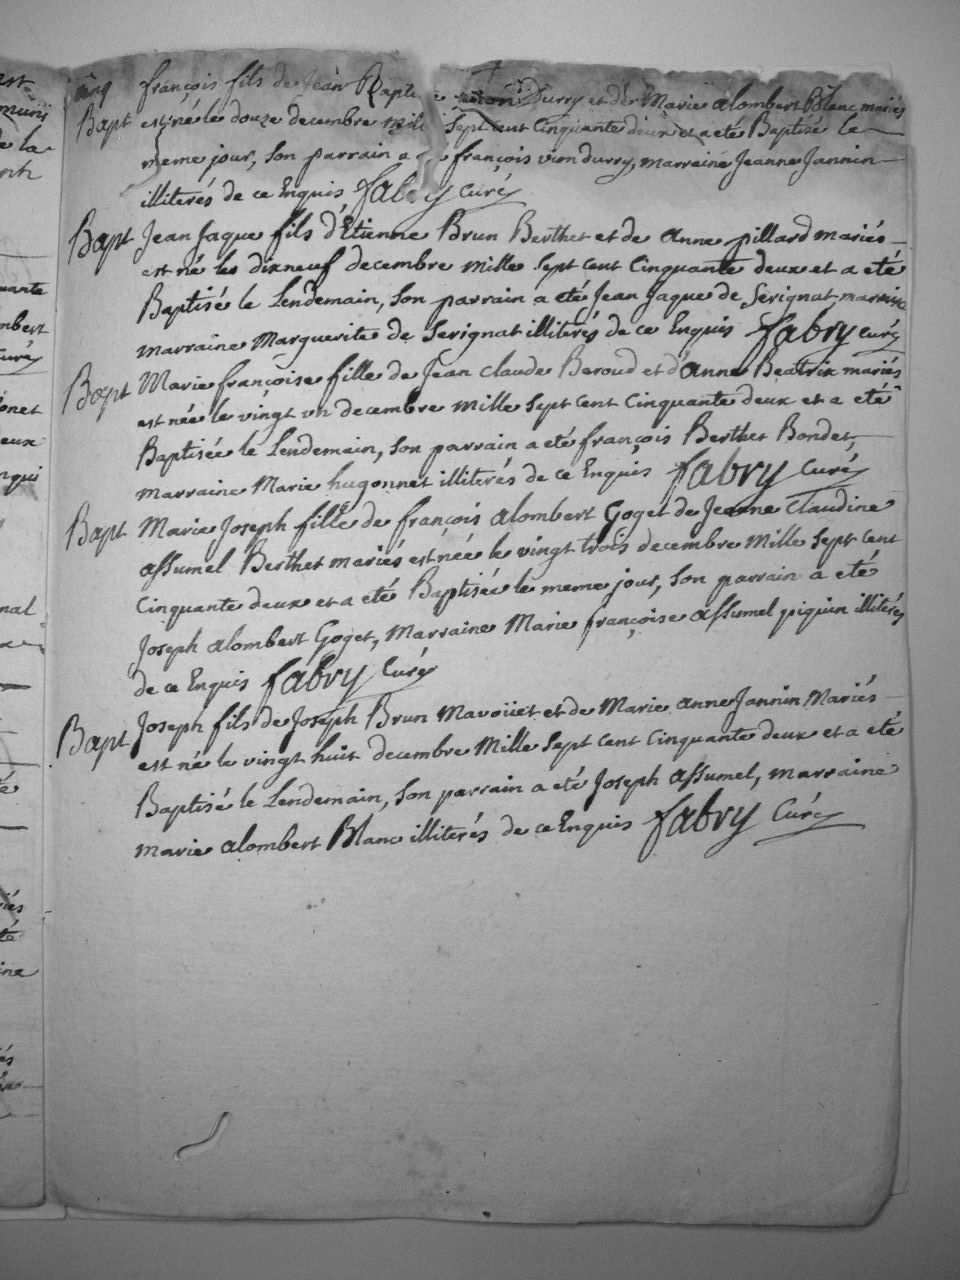 cinq
françois fils de Jean Bapti vion Durry et de Marie alombert Blanc mariés
Bapt est né le douze decembre mil sept cent cinquante deux et a eté Baptisé le
meme jour, son parrain a françois vion durry, marraine Jeanne Jannin
illiterés de ce Enquis fabry curé
Bapt Jean Jaque fils d'Etienne Brun Berthet et de anne pillard mariés
est né les dixneuf decembre mille sept cent cinquante deux et a eté
Baptisé le Lendemain, son parrain a eté Jean Jaque de Serignat, marraine
marraine Marguerite de Serignat illiterés de ce Enquis fabry curé
Bapt Marie françoise fille de Jean claude Beroud et d'Anne Beatrix mariés
est née le vingt un decembre mille sept cent cinquante deux et a eté
Baptisée le Lendemain, son parrain a eté françois Berthet Bondet,
marraine Marie hugonnet illiterés de ce Enquis fabry curé
Bapt Marie Joseph fille de françois alombert Goget de Jeanne claudine
assumel Berthet mariés est née le vingt trois decembre mille sept cent
cinquante deux et a eté Baptisée le meme jour, son parrain a eté
Joseph alombert Goget, Marraine Marie françoise assumel piquin illiterés
de ce Enquis fabry curé
Bapt Joseph fils de Joseph Brun Mavoüet et de Marie anne Jannin Mariés
est né le vingt huit decembre Mille sept cent cinquante deux et a eté
Baptisé le Lendemain, son parrain a eté Joseph assumel, marraine
marie alombert Blanc illiterés de ce Enquis fabry curé